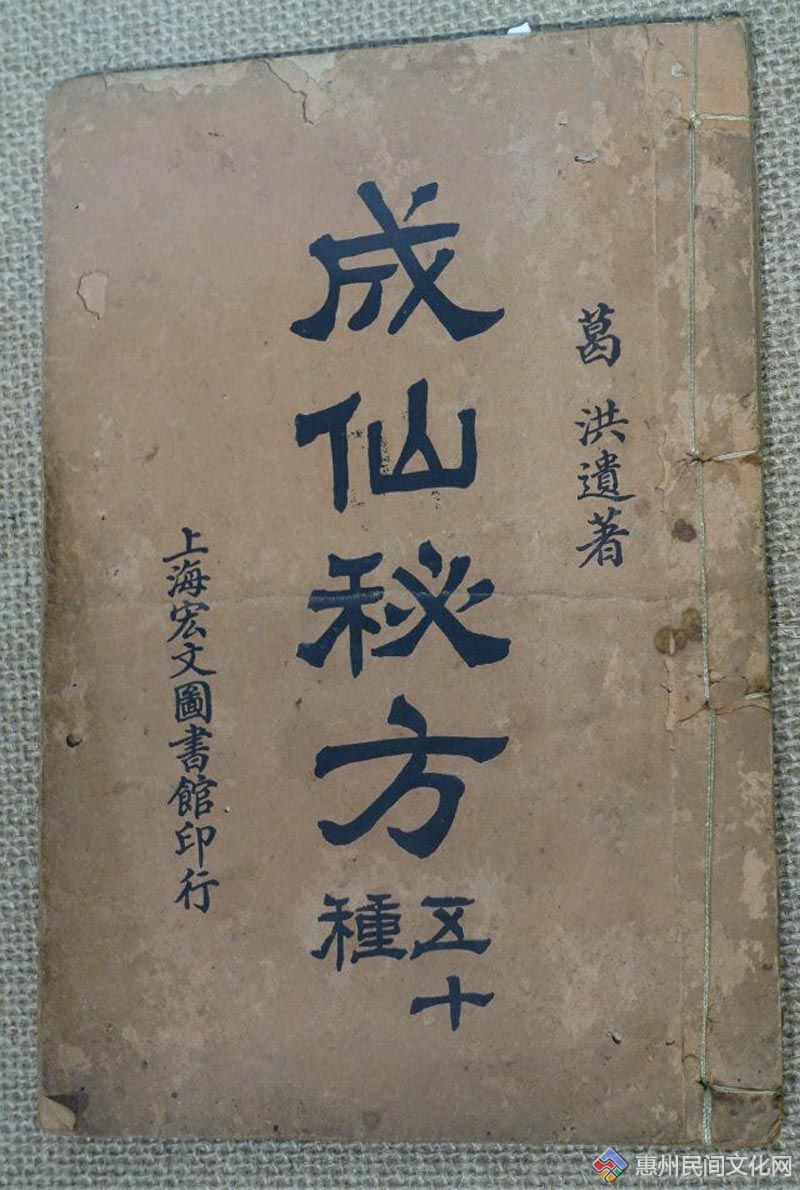 葛洪遺著
成仙秘方
五十
種
上海宏文圖書館印行
惠州民间文化网